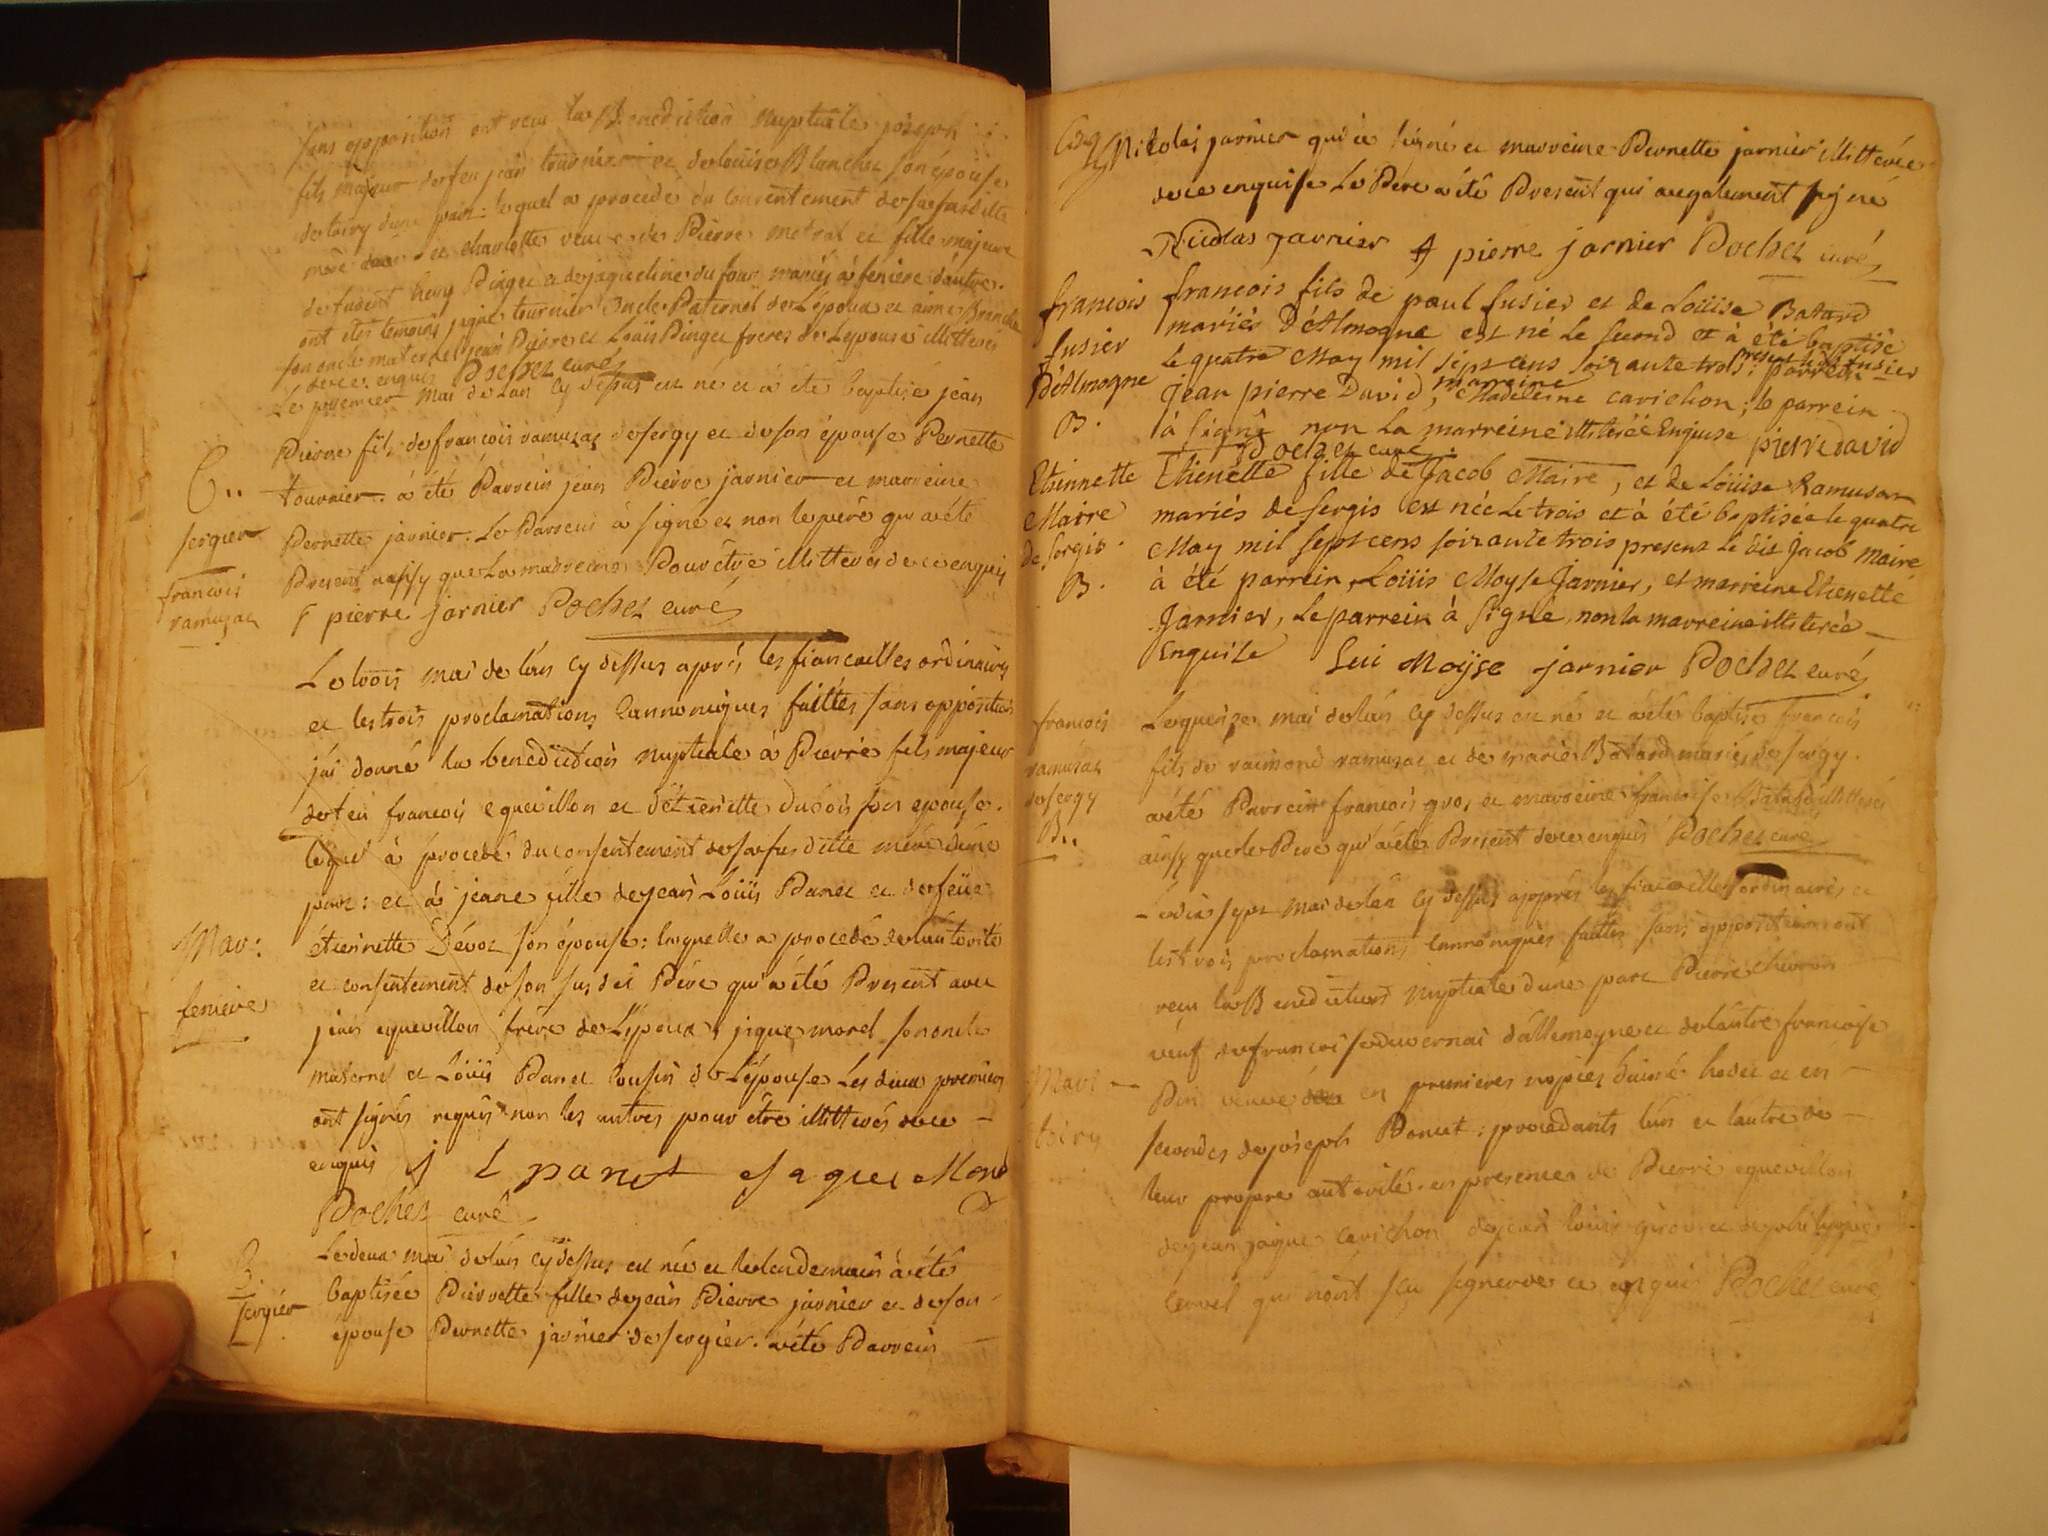 sans opposition ont reçu la Benediction nuptiale joseph
fils majeur de feu jean tournier et de loüise Blanchet son épouse
de toiry d'une part: lequel a procedé du consentement de sa susditte
mère et charlotte veuve de Pierre metral et fille majeure
de fudent henry Pinget et de jaqueline dufour mariés à feniere d'autre.
ont étés temoins jaque tournier oncle Paternel de L'epoux et aimé Branche
son oncle maternel jean Pierre et Loüis Pinget freres de L'epouse illitterés
de ce enquis Pochet curé
Le premier mai de l'an cy dessus est né et à été baptisé jean
Pierre fils de francois ramusat de sergy et de son épouse Pernette
B..
tournier. à été Parrein jean Pierre jarnier et marreine
sergier
Pernette jarnier. Le Parrein à signé et non le père qui a été
francois
ramusat
Present ainsy que La marreine Pour être illitterés de ce enquis
pierre jarnier Pochet curé
Le trois mai de l'an cy dessus après les fiancailles ordinaires
et les trois proclamations Cannoniques faittes sans opposition
j'ai donné la benediction nuptiale à Pierre fils majeur
de feu francois equevillon et d'étienette dubois son epouse.
lequel à procedé du consentement de sa susditte mère d'une
part: et à jeane fille de jean Loüis Panet et de feüe
Mar:
étiennette Dévoz son épouse: laquelle a procedé de l'autorité
et consentement de son susdit Père qui a été Present avec
feniere
jean equevillon frère de L'époux, jaque morel son oncle
maternel et Loüis Panet cousin de L'épouse Les deux premiers
ont signés requis non les autres pour être illitterés de ce
enquis J L panet Jaque Morel
Pochet curé
B.
Le deux mai de l'an cy dessus est née et le lendemain à été
sergier
baptisée Pierrette fille de jean Pierre jarnier et de son
épouse Pernette jarnier de sergier. a été Parrein
Nicolas jarnier qui à signé et marreine Pernette jarnier illitterée
de ce enquise Le Père a été Present qui a egalement signé
Nicolas jarnier pierre jarnier Pochet curé
francois
fusier
D'Almogne
B.
francois fils de paul fusier et de Loüise Batard
mariés D'Almogne est né le second et à été baptisé
le quatre May mil sept cens soixante trois: present led. fusier parrein
jean pierre David, marreine Madeleine carichon; le parrein
à signé non la marreine illiterée Enquise pierre David
Pochet curé
Etiennette
Maire
De Sergis.
B.
Etienette fille de Jacob Maire, et de Loüise Ramusar
mariés de sergis est née le trois et à été baptisée le quatre
May mil sept cens soixante trois present le dit Jacob Maire
à été parrein, Loüis Moyse Jarnier, et marreine Etienette
Jarnier, Le parrein à signé, non la marreine illiterée
Enquise Lui Moÿse jarnier Pochet curé
francois
ramusat
de sergy
B..
Le quinze mai de l'an cy dessus est né et a été baptisé francois
fils de raimond ramusat et de marie Batard mariés de sergy.
a été Parrein francois gros et marreine francoise Batard illitterés
ainsy que le Père qui a été Present de ce enquis Pochet curé
Le dix sept mai de l'an cy dessus apprès les fiancailles ordinaires et
les trois proclamations Cannoniques faittes sans opposition ont
reçu la Benediction Nuptiale d'une part Pierre chevron
veuf de francoise duvernai d'allemogne et de l'autre francoise
Mar:
toiry
Pin veuve en premieres nopces d'aimé hodet et en
secondes de joseph Panet: procedants l'un et l'autre de
leur propre autorité. en presence de Pierre equevillon
de jean jaque carichon de jean loüis girod et de philippe
qui n'ont sçu signer de ce enquis Pochet curé